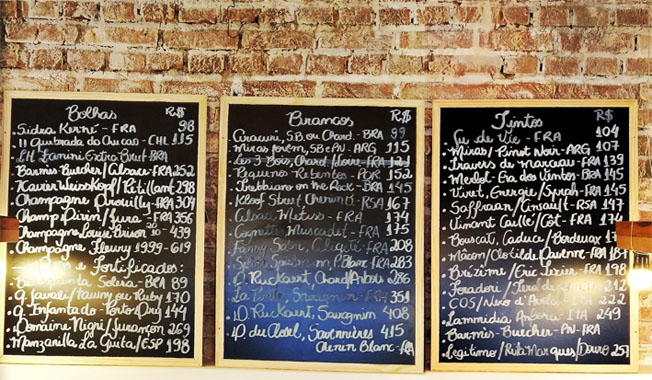 Bolhas R$
Sidra Kerné - FRA 98
II Quebrada do Chucao - CHL 115
LH Zanini Extra Brut - BRA
Barmès Buecher/Alsace - FRA 252
Xavier Weisskopf/Pétillant 298
Champagne Drouilly - FRA 304
Champ Dirin/Jura - FRA 356
Champagne Louise Brison 439
Champagne Fleury 1999 - 619
e Fortificados:
Solera - BRA 89
Q. Javali/Tawny ou Ruby 170
Q. Infantado - Porto Org 144
Domaine Nigri/Jurançon 269
Manzanilla La Guita/ESP 198
Brancos R$
Guracuri, S.B. ou Chard. - BRA 99
Miras Joven, SB e PN - ARG 115
Les 3 Bois, Chard/Loire - FRA 121
Pequeno Rebentos - POR 152
Trebbiano on the Rock - BRA 145
Kloof Street Chenin - RSA 167
Alsace Metiss - FRA 174
Cornette Muscadet - FRA 175
Fanny Sabre, Aligoté - FRA 208
Blanc - FRA 283
D. Rickaert Chard/Arbois 286
Sauvignon - FRA 351
D. Rickaert, Savagnin 408
D. du Closel, Savennières 415
Chenin Blanc - FRA
Tintos R$
Vie - FRA 104
Miras/Pinot Noir - ARG 107
Travers de Marceau - FRA 139
Merlot - Era dos Ventos - BRA 145
Viret, Energie/Syrah - FRA 147
Saffraan/Cinsault - RSA 147
Vincent Caillé/Côt - FRA 174
Bouscat, Caduce/Bordeaux
Mâcon/Clotilde Davenne - FRA 187
Brézème/Eric Texier - FRA 198
Foradori/ 212
COS/Nero d'Avola - ITA 222
Lammidia Anfora - ITA 249
Barmès - Buecher - PN - FRA
Legitimo/Rita Marques/Douro 257